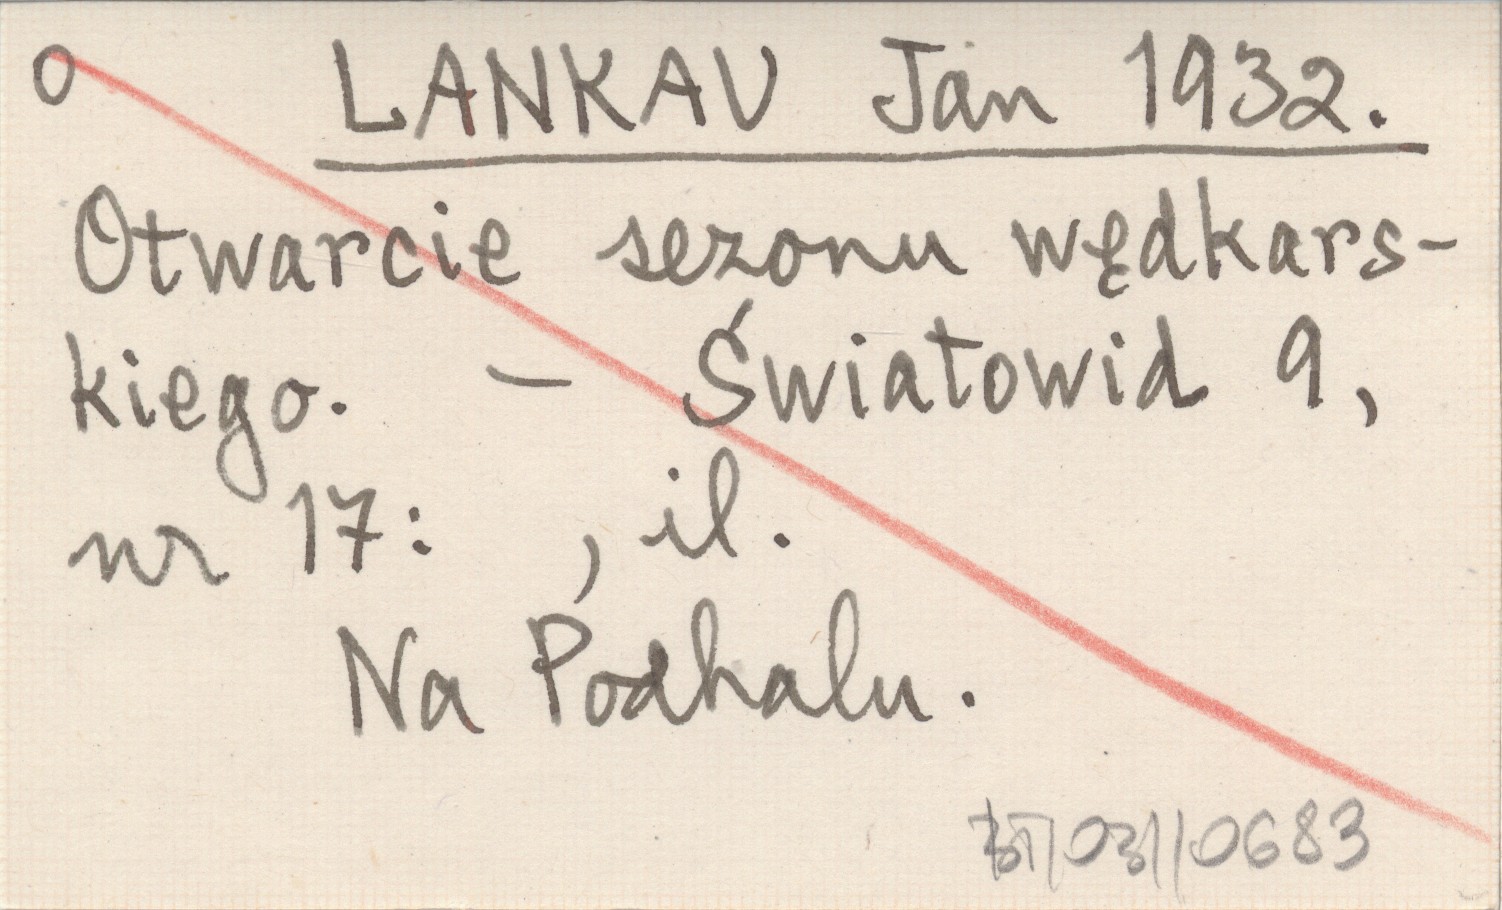 O LANKAU Jan 1932.
Otwarcie sezonu wędkars-
kiego. - Światowid 9,
nr 17: , il.
Na Podhalu.
0683